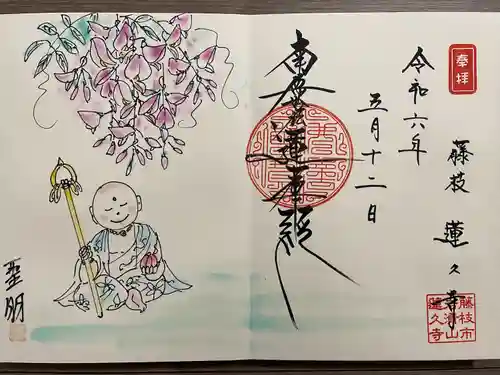 奉拝
令和六年
五月十二日
南無妙法蓮華経
藤枝 蓮久寺
藤枝市
蓮久寺
聖明